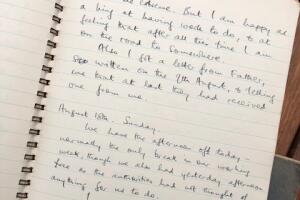 scheme. But I am happy as
a king at having work to do, & at
feeling that after all this time I am
on the road to somewhere.
Also I got a letter from Father,
written on the 9th August, & telling
me that at last they had received
one from me.
August 18th. Sunday.
We have the afternoon off today -
normally the only break in our working
week, though we also had yesterday afternoon
free as the authorities had not thought of
anything for us to do.